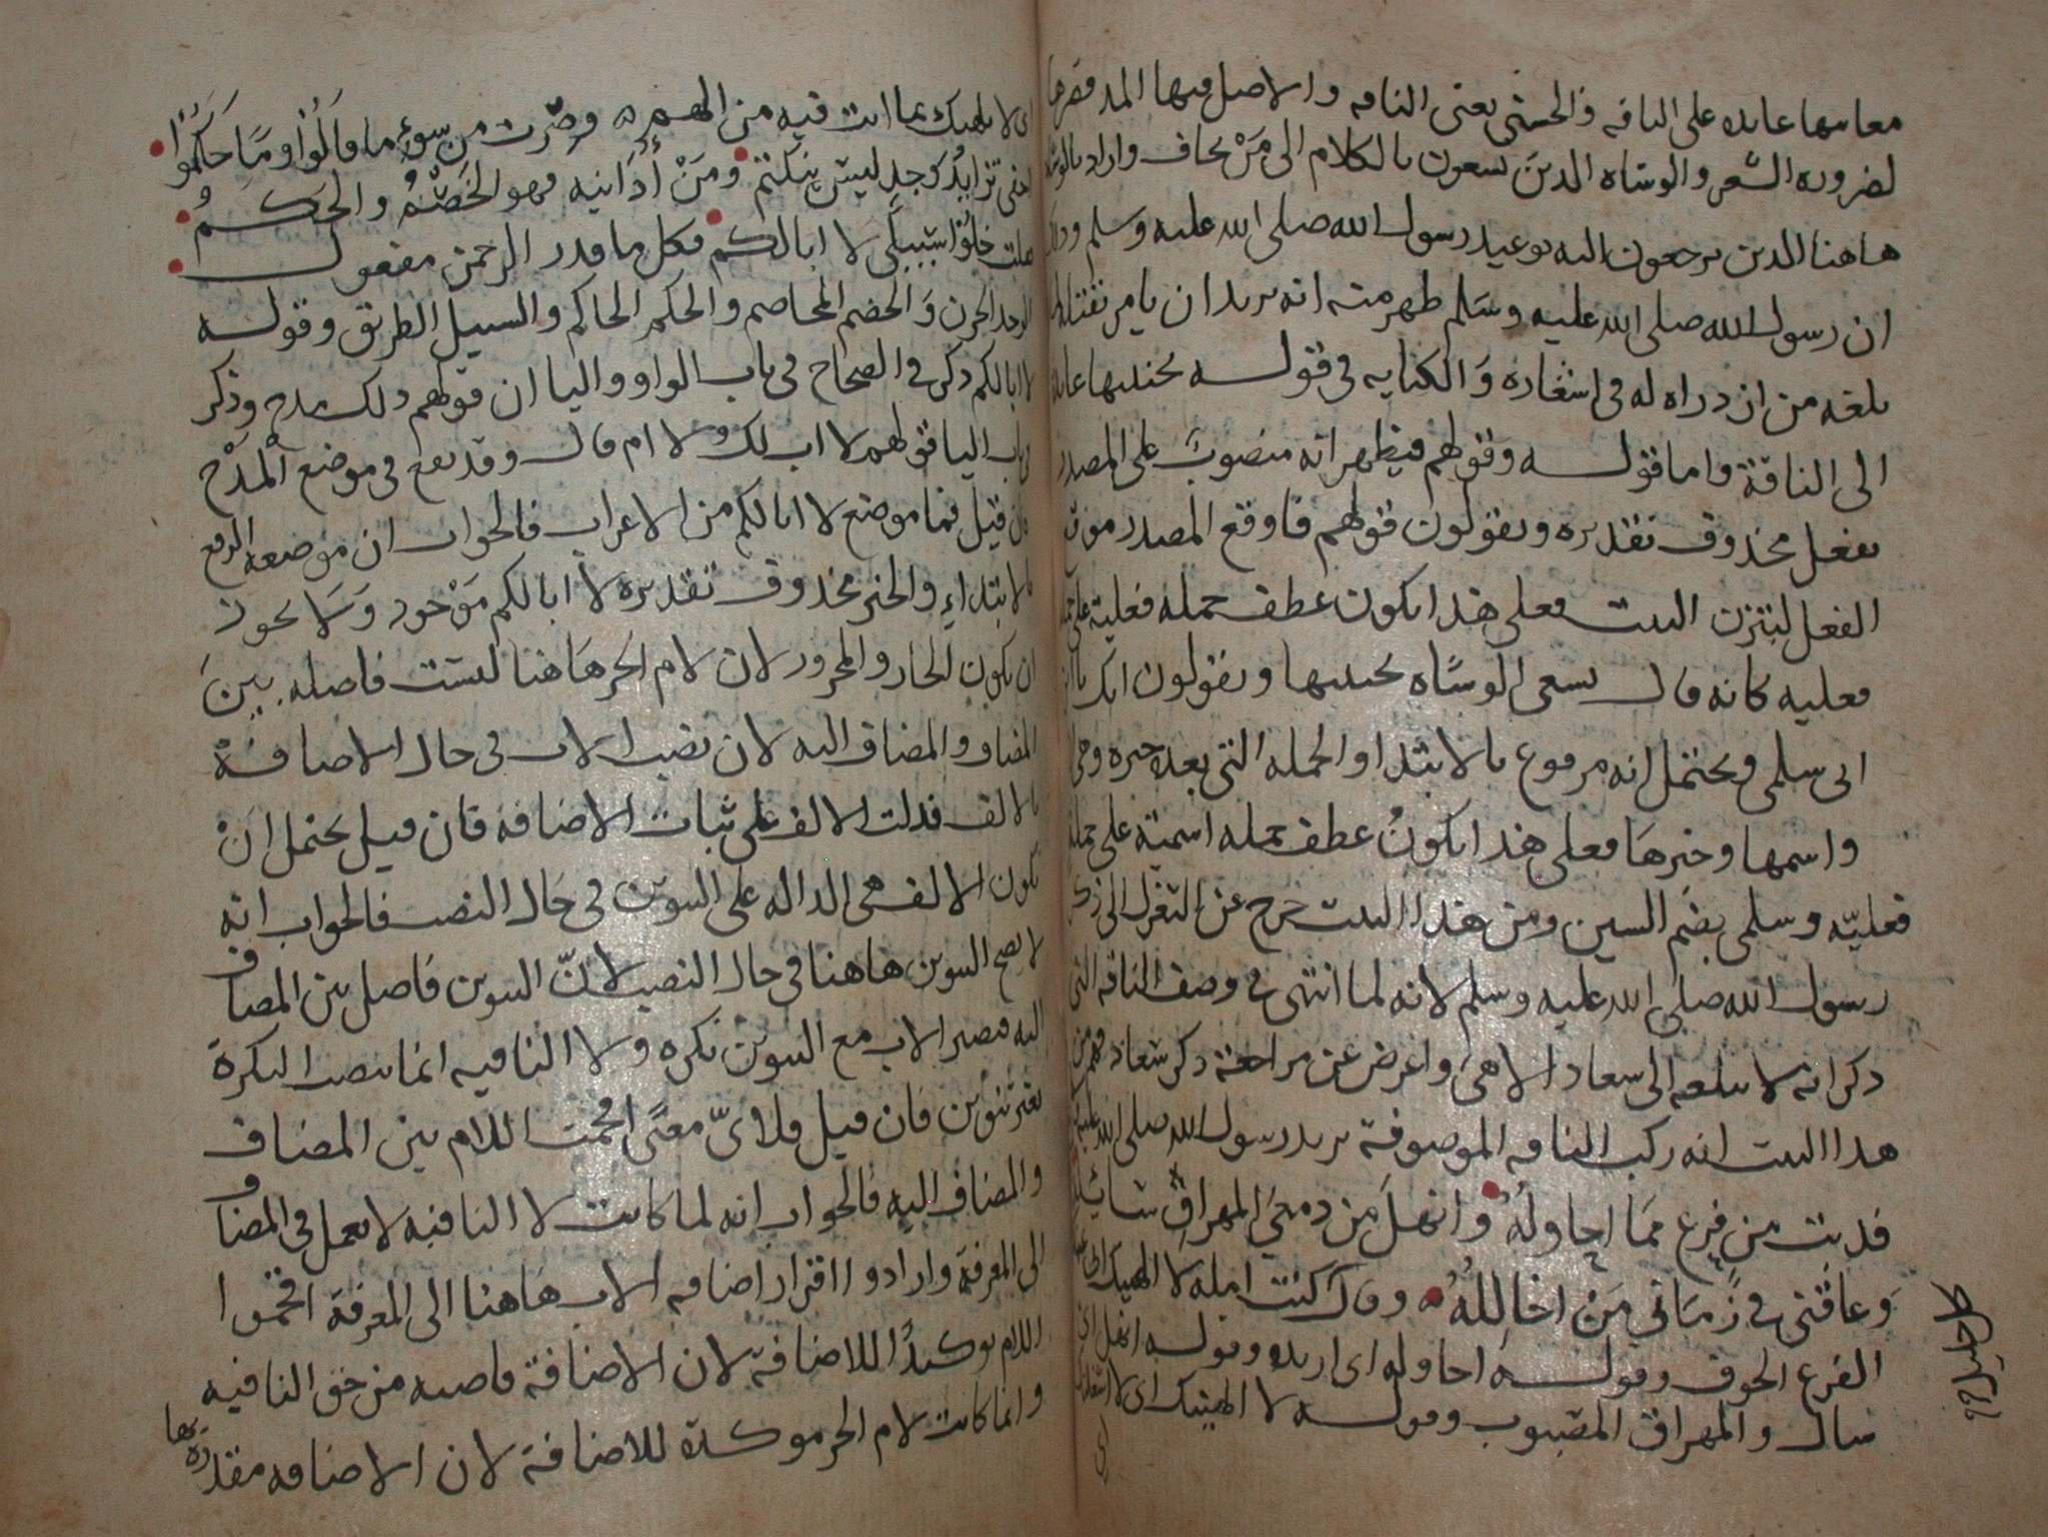 معاسها عايده على الناقه فالحسنى يعنى الناقه والاصل فيها المد فقصرها
لضروره الشعر والوشاه الذين يسعون بالكلام الى مَنْ يخاف واراد بالوشاه
هاهنا الذين يرجعون اليه بوعيد رسول الله صلى الله عليه وسلم وذلك
ان رسول الله صلى الله عليه وسَلم ظهر منه انه يريد ان يامر بقتله لما
بلغه من ازدراه له فى اشعاره وَالكنايه فى قوله بجنبيها عايده
الى الناقة واما قوله وقولهم فيظهر انه منصوبٌ على المصدر
بفعل محذوف تقديره ويقولون قولهم فاوقع المصدر موقع
الفعل ليتزن البيت فعلى هذا يكون عطف جمله فعلية على جمله
فعليه كانه قال يسعى الوشاه بجنبيها ويقولون انك يا ابن
ابى سلمى ويحتمل انه مرفوع بالابتدا والجمله التى بعده خبره وهى
واسمها وخبرهَا فعلى هذا يكونُ عطف جمله اسمية على جمله
فعليّه وسلمى بضم السين ومن هذا البيت خرج عن التغزل الى ذكر
رسول الله صلى الله عليه وسلم لانه لما انتهى فى وصف الناقه التى
ذكر انه لا يبلغه الى سعاد الا هىَ واعرض عن مراجعة ذكر سعاد فهم من
هذا البيت انه ركب الناقه الموصوفة يريد رسول الله صلى الله عليه
قد بت من فزع مما احاولهُ وانهلَ من دمعىَ المهراقِ سايله
وَعاقنى فى زَمانى مَنْ اخالِلُهُ وقال كنت امله لا الهينك انى عنك
الفزع الخوف وقوله احاوله اى اريده وقوله انهل اى
سال والمهراق المصبوب وقوله لا الهينك اى لا اشغلنك
اى لا يلهيك عما انت فيه من الهم وصرت من سوءِ ما قالُوا وما حَكَمُوْا
اخفى تزايدُ وَجدٍ ليس ينكتم وَمَنْ اُدَانيه فهو الخَصْمُ والحَكَمُ
فقلت خلوا سبيلى لا ابا لكم فكل ما قدر الرحمن مفعول
الوجد الحزن وَالخصم المخاصم والحكم الحاكم والسبيل الطريق وقوله
لا ابا لكم ذكر فى الصحاح فى باب الواو واليا ان قولهم ذلك مدح وذكر
فى باب اليا قولهم لا اب لك ولا ام قال وقد يقع فى موضع المدْح
فان قيل فما موضع لا ابا لكم من الاعراب فالجواب ان موضعه الرفع
بالابتداءِ والخبر محذوف تقديره لا ابا لكم مَوْجود وَلا يجوز
ان يكون الجار والمجرور لان لام الجر هَاهنا ليست فاصله بينَ
المضاف والمضاف اليه لان نصب الاب فى حال الاضافة
بالالف فدلت الالف على ثبات الاضافه فان قيل يحتمل انْ
تكون الالف هى الداله على التنوين فى حَال النصب فالجواب انه
لا يصح التنوين هاهنا فى حال النصب لانّ التنوين فاصل بين المضاف
اليه فيصير الاب مع التنوين نكره ولا النافيه انما تنصب النكرة
بغير تنوين فان قيل فلاىّ معنًى اقحمت اللام بين المضاف
والمضاف اليه فالجواب انه لما كانت لا النافيه لا تعمل فى المضاف
الى المعرفة وارادوا اقرار اضافه الاب هَاهنا الى المعرفة اقحموا
اللام توكيدًا للاضافة لان الاضافة قاصيه من حق النافيه
وانما كانت لام الجر موكدة للاضافة لان الاضافه مقدرة بها